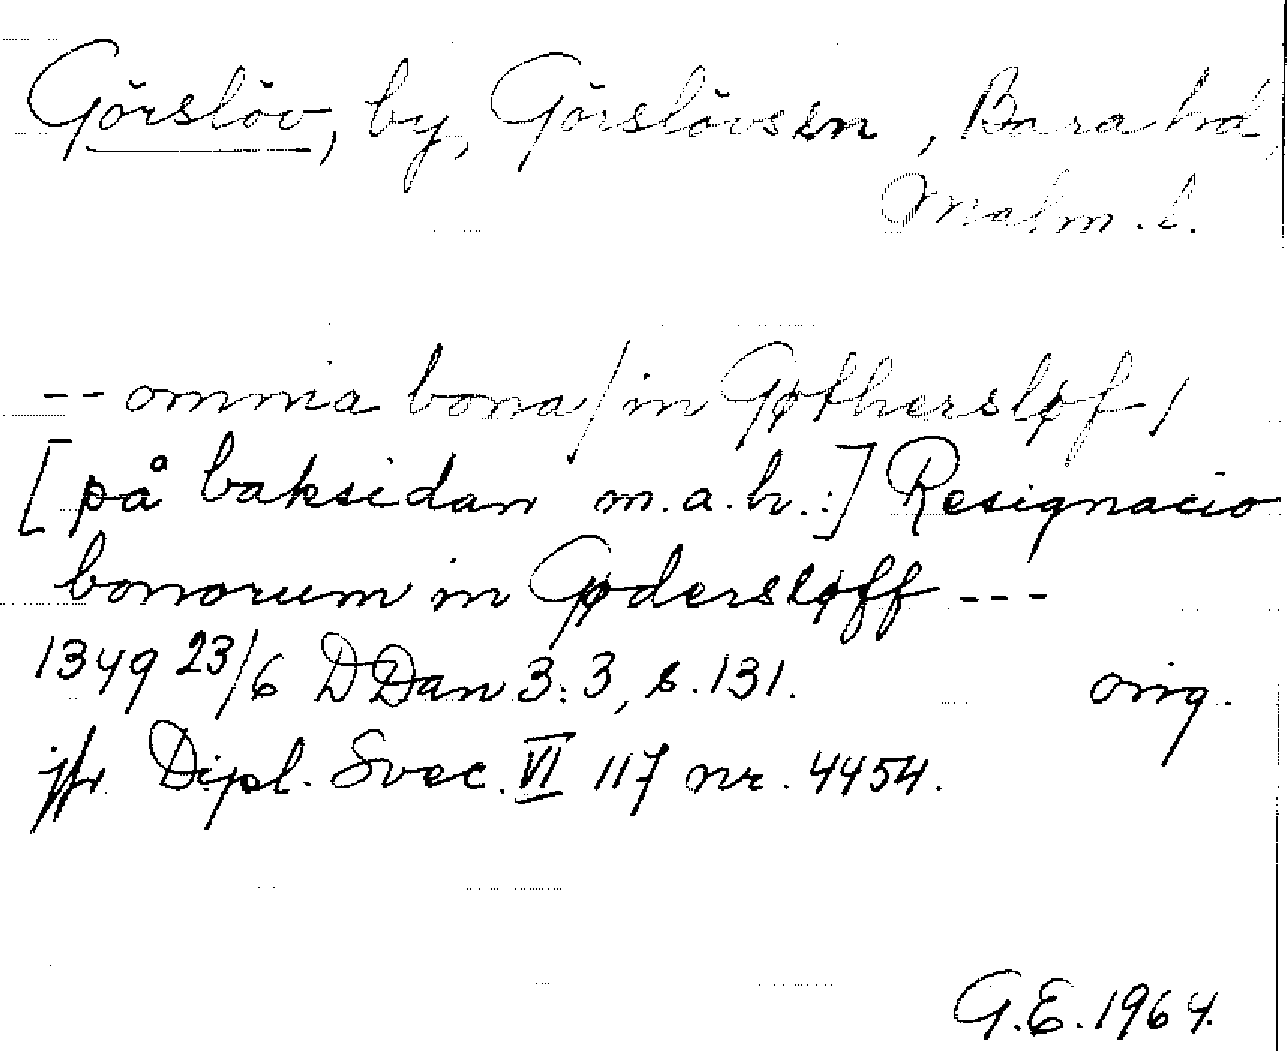 Görslöv, by, Görslövs sn, Bara hd,
Malm. l.
-- omnia bona / in Gøthersløf /
[på baksidan m.a.h.:] Resignacio
bonorum in Gødersløff ---
1349 23/6 DDan 3:3, s. 131. orig.
jfr Dipl. Svec. VI 117 nr. 4454.
G.E. 1964.